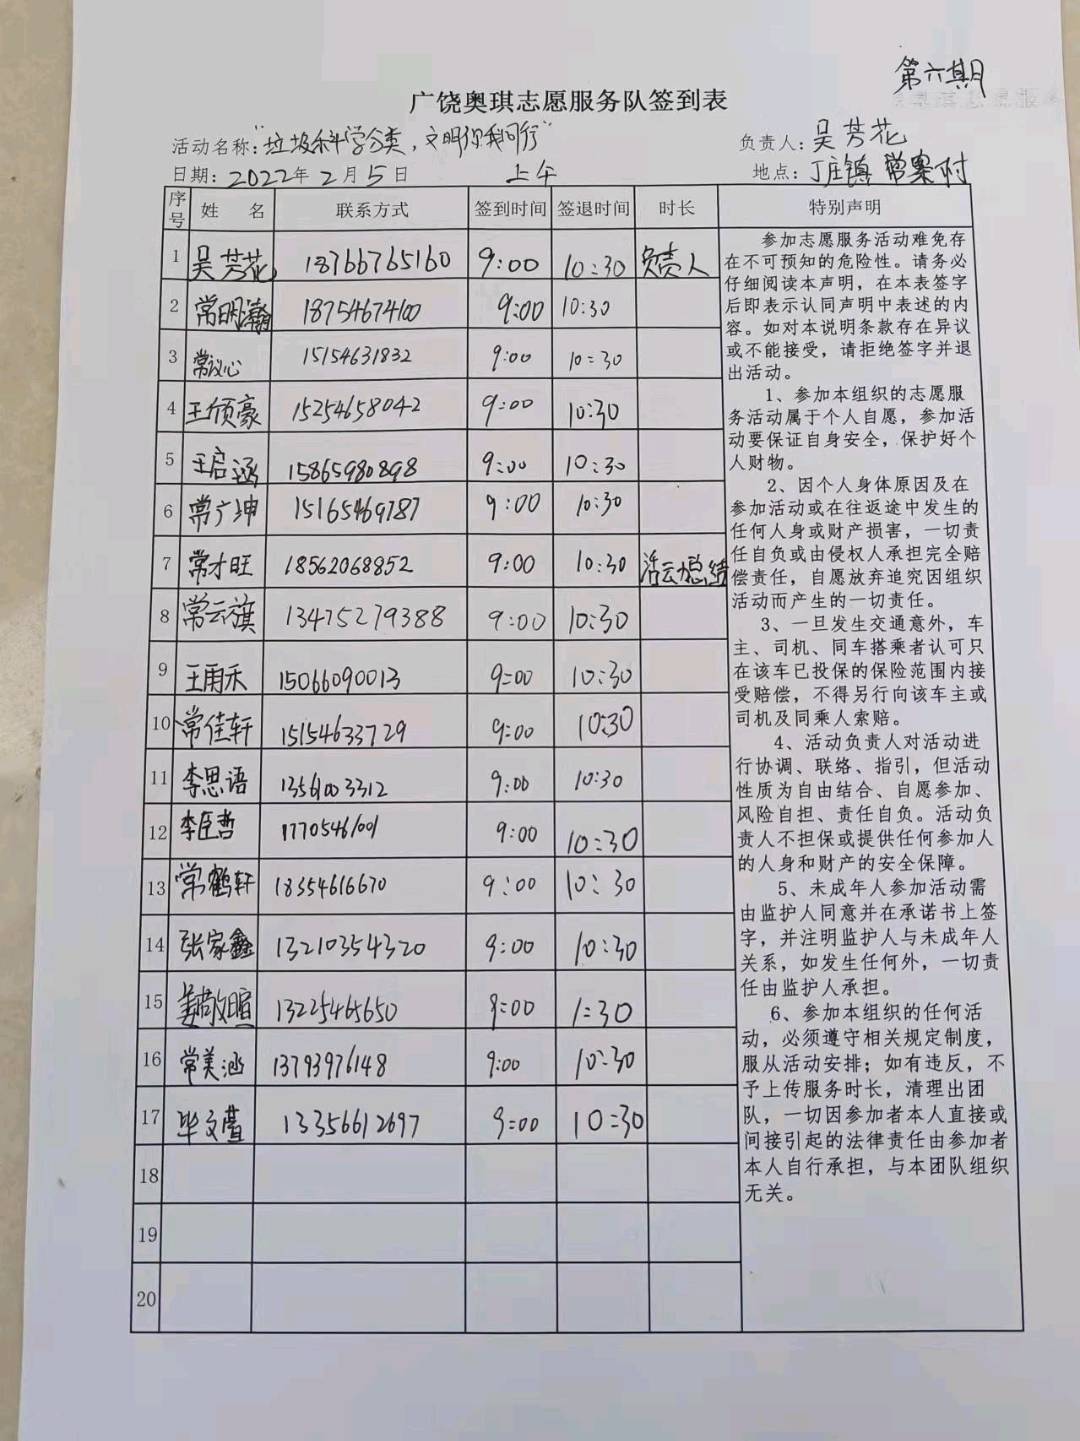 第六期
广饶奥琪志愿服务队签到表
活动名称:"垃圾科学分类,文明你我同行"
负责人:吴芳花
日期:2022年2月5日 上午
地点:丁庄镇 常案村
序号 姓 名 联系方式 签到时间 签退时间 时长 特别声明
1 吴芳花 18766765160 9:00 10:30 负责人
2 常明瀚 18754674100 9:00 10:30
3 常议心 15154631832 9:00 10:30
4 王硕豪 15254658042 9:00 10:30
5 王启涵 15865980898 9:00 10:30
6 常广坤 15165469787 9:00 10:30
7 常才旺 18562068852 9:00 10:30 活动总结
8 常云旗 13475279388 9:00 10:30
9 王雨禾 15066090013 9:00 10:30
10 常佳轩 15154633729 9:00 10:30
11 李思语 13561003312 9:00 10:30
12 李臣哲 17705461001 9:00 10:30
13 常鹤轩 18354616670 9:00 10:30
14 张家鑫 13210354320 9:00 10:30
15 姜敬暄 13225465650 9:00 1:30
16 常美涵 13793976148 9:00 10:30
17 毕文萱 13356612697 9:00 10:30
18
19
20
参加志愿服务活动难免存
在不可预知的危险性。请务必
仔细阅读本声明,在本表签字
后即表示认同声明中表述的内
容。如对本说明条款存在异议
或不能接受,请拒绝签字并退
出活动。
1、参加本组织的志愿服
务活动属于个人自愿,参加活
动要保证自身安全,保护好个
人财物。
2、因个人身体原因及在
参加活动或在往返途中发生的
任何人身或财产损害,一切责
任自负或由侵权人承担完全赔
偿责任,自愿放弃追究因组织
活动而产生的一切责任。
3、一旦发生交通意外,车
主、司机、同车搭乘者认可只
在该车已投保的保险范围内接
受赔偿,不得另行向该车主或
司机及同乘人索赔。
4、活动负责人对活动进
行协调、联络、指引,但活动
性质为自由结合、自愿参加、
风险自担、责任自负。活动负
责人不担保或提供任何参加人
的人身和财产的安全保障。
5、未成年人参加活动需
由监护人同意并在承诺书上签
字,并注明监护人与未成年人
关系,如发生任何外,一切责
任由监护人承担。
6、参加本组织的任何活
动,必须遵守相关规定制度,
服从活动安排;如有违反,不
予上传服务时长,清理出团
队,一切因参加者本人直接或
间接引起的法律责任由参加者
本人自行承担,与本团队组织
无关。